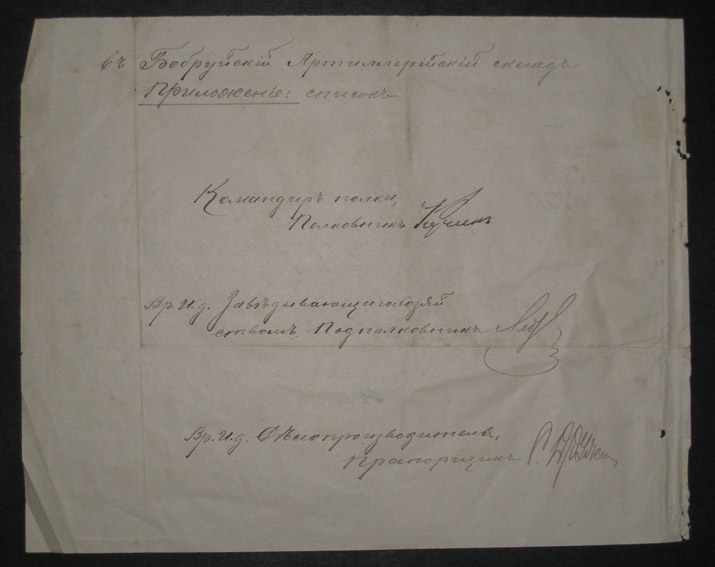 въ Бобруйскій Артиллерійскій складъ
Приложеніе: списокъ
Командиръ полка,
Полковникъ
Вр. И. д. Завѣдывающаго хозяй
ствомъ Подполковникъ
Вр. И. д. Дѣлопроизводителя,
Прапорщикъ